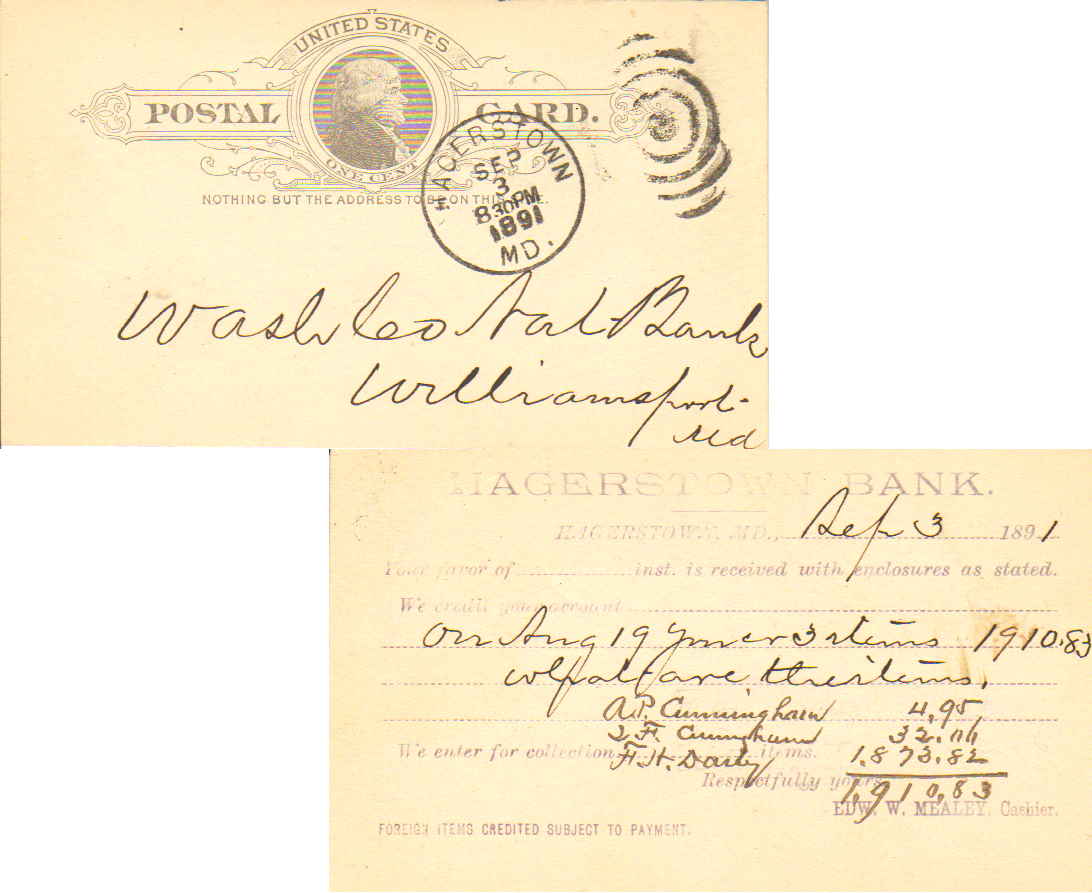 UNITED STATES
POSTAL CARD.
ONE CENT
NOTHING BUT THE ADDRESS TO BE ON THIS SIDE.
HAGERSTOWN
SEP
3
8 30PM
1891
MD.
Wash Co Nat Bank
Williamsport
Md
HAGERSTOWN BANK.
HAGERSTOWN, MD., Sep 3 1891
Your favor of inst. is received with enclosures as stated.
We credit your account
On Aug 19 you cr 3 items 1910.83
what are the items.
A.P. Cunningham 4,95
F. Cunningham 32.06
We enter for collection items.
F. H. Darby 1.873.82
Respectfully yours
1,910,83
EDW. W. MEALEY, Cashier.
FOREIGN ITEMS CREDITED SUBJECT TO PAYMENT.